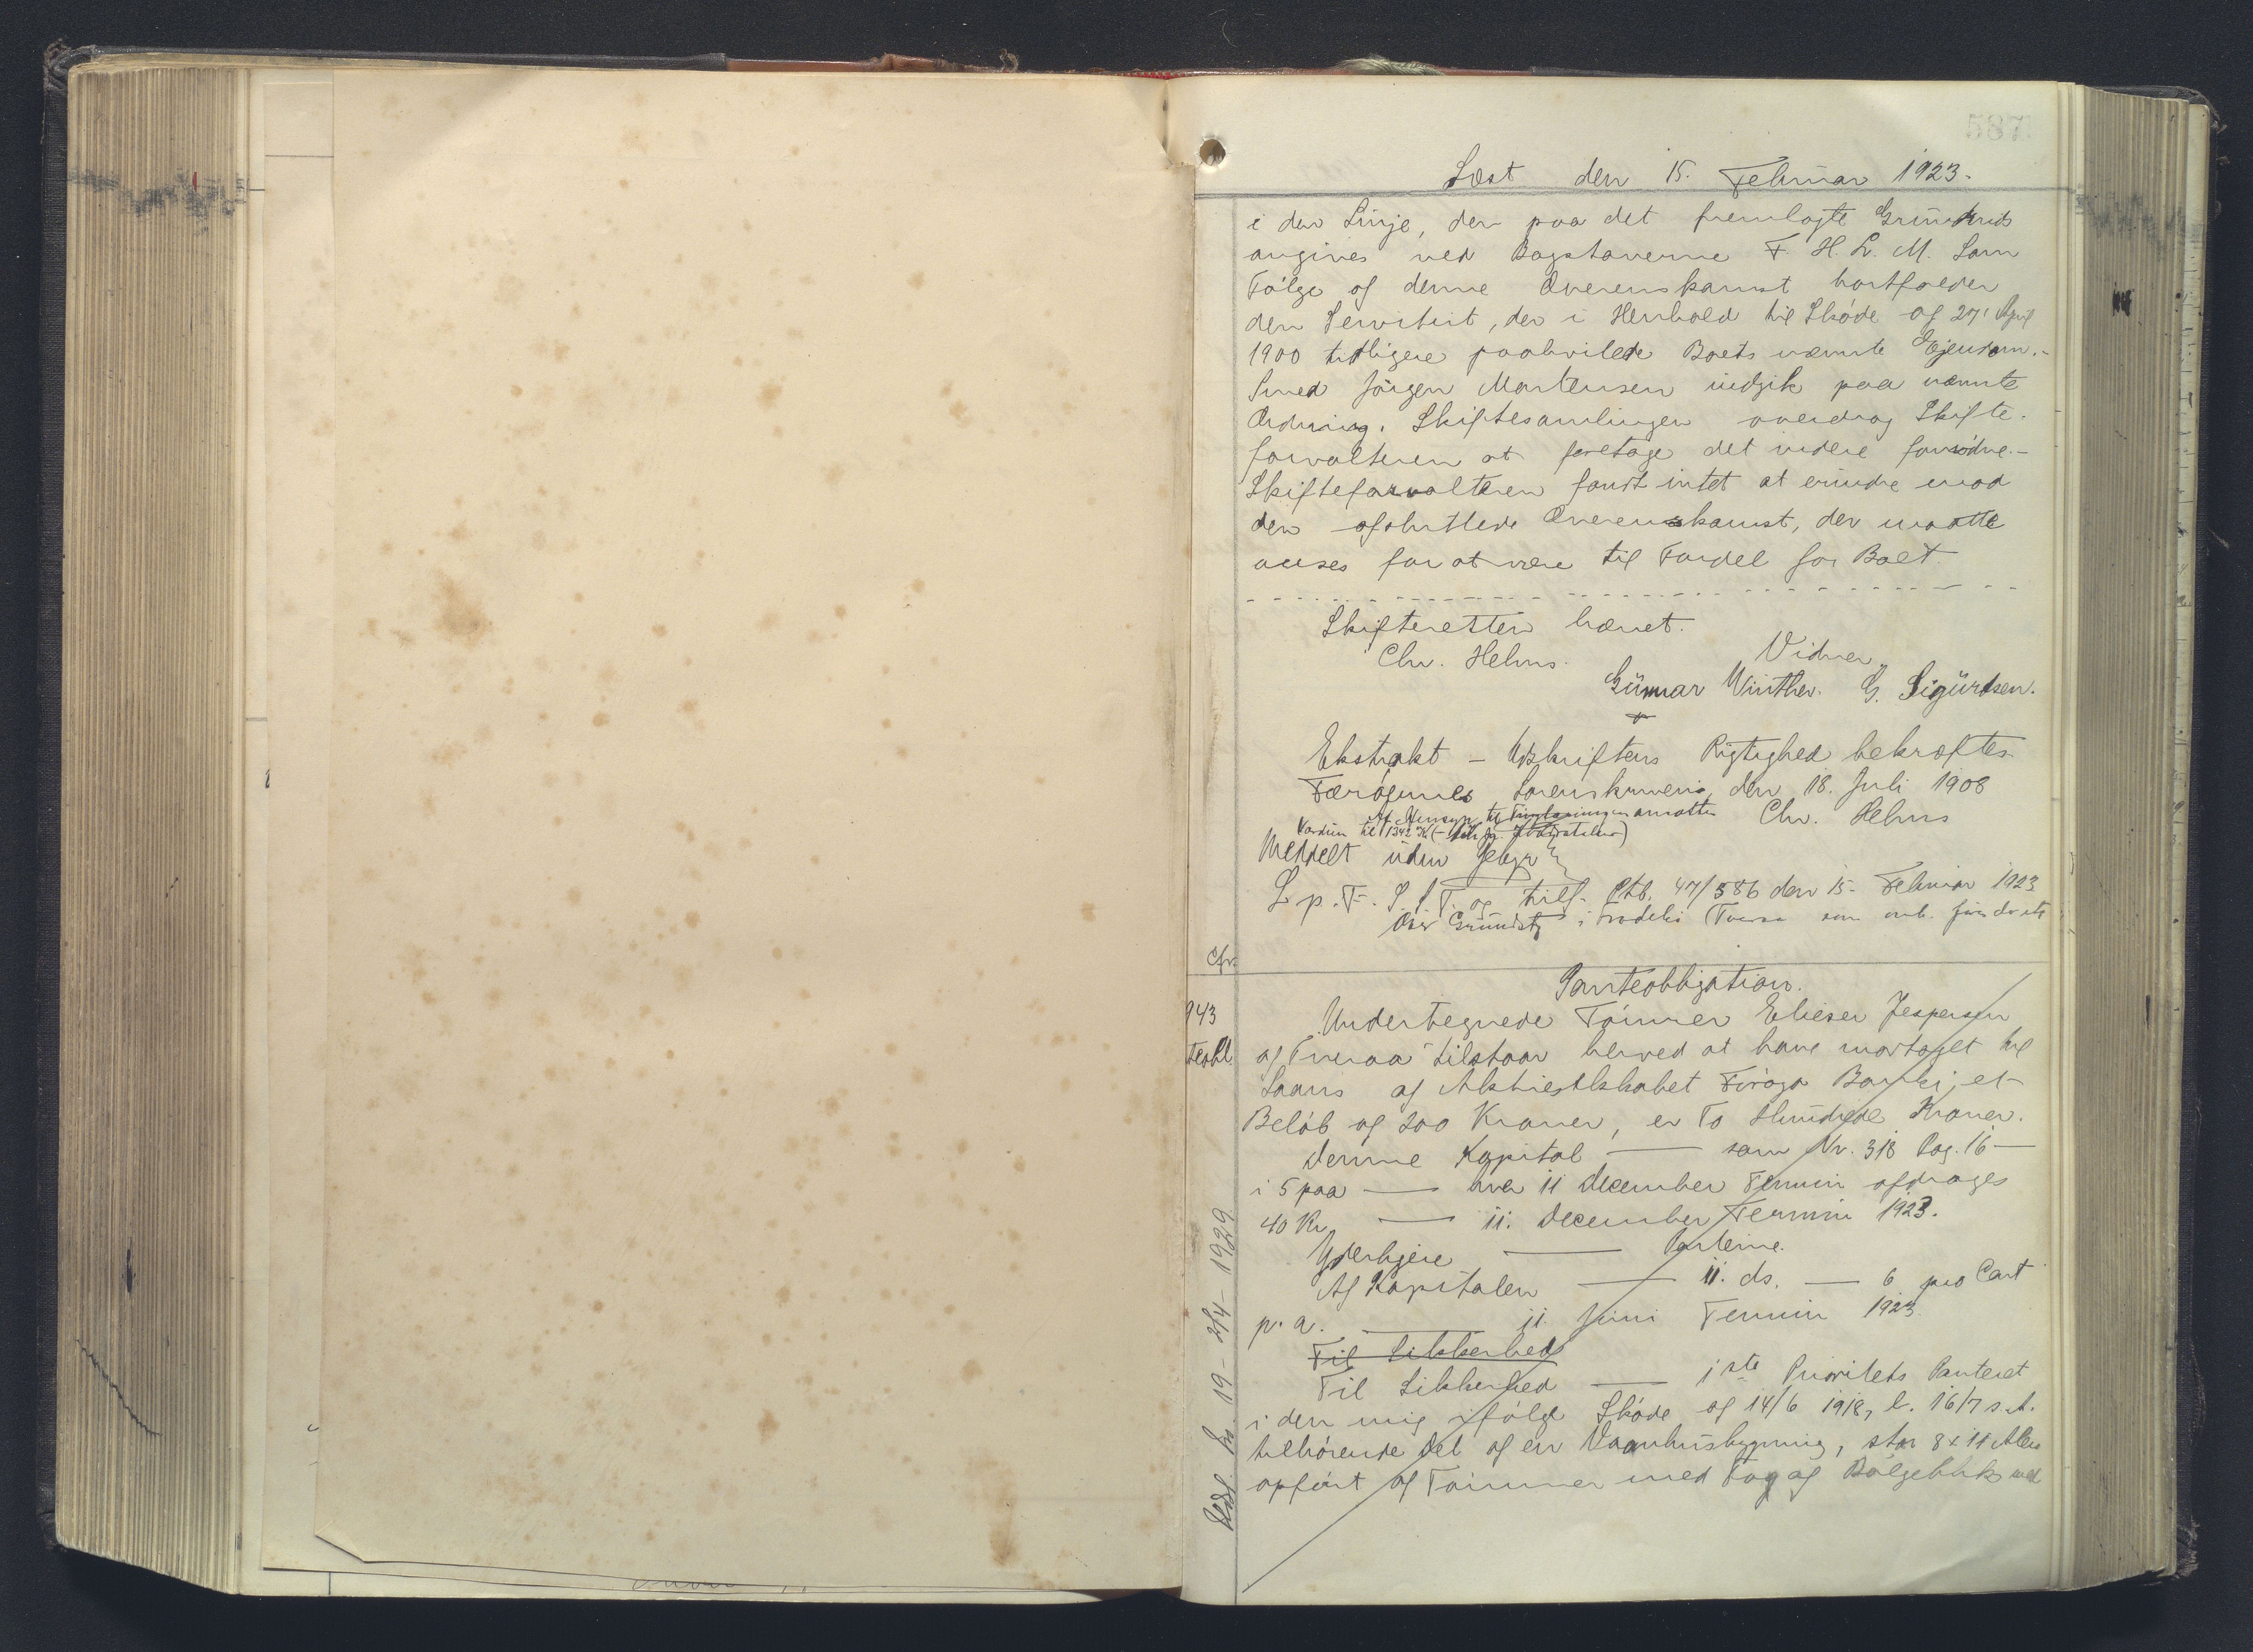 587
Læst den 15. Februar 1923.
i den Linje, der paa det fremlagte Grundrids
angives ved Bogstaverne F. H. L. M. Som
Følge af denne Overenskomst bortfalder
den Servitut, der i Henhold til Skøde af 27' April
1900 tidligere paahvilede Boets nævnte Ejendom.-
Smed Jørgen Mortensen indgik paa nævnte
Ordning. Skiftesamlingen overdrog Skifte-
forvalteren at foretage det videre fornødne.-
Skifteforvalteren fandt intet at erindre mod
den afsluttede Overenskomst, der maatte
anses for at være til Fordel for Boet.
Skifteretten hævet.
Chr. Helms. Vidner
Gunnar Winther. G. Sigurdsen.
Ekstrakt - Udskriftens Rigtighed bekræftes
Færøernes Sorenskriveri, den 18. Juli 1908
Af Hensyn til Tinglæsningen ansættes Chr. Helms
Værdien til 1342 Kr
Meddelt uden Gebyr
L. p. F. S. S. T. og tilf. Ptb. 47/586 den 15- Februar 1923
i Trodelsi
Cfr.
Panteobligation.
943 Undertegnede Tømrer Elieser Jespersen
af Tveraa tilstaar herved at have modtaget til
Laans af Aktieselskabet Føroya Banki, et
Beløb af 200 Kroner, er To Hundrede Kroner.
Denne Kapital — som Nr. 318 Pag. 16 —
i 5 paa — hver 11 December Termin afdrages
40 Kr. — 11. December Termin 1923.
Yderligere — Parterne.
Af Kapitalen — 11. ds. — 6 pro Cent
p. a. — 11 Juni Termin 1923
Til Sikkerhed
Til Sikkerhed — 1ste Prioritets Panteret
i den mig ifølge Skøde af 14/6 1918, l. 16/7 s. A.
tilhørende Del af en Vaanhusbygning, stor 8 x 11 Alen
opført af Tømmer med Tag af Bølgeblik med
Udsl. 19-2/4-1929